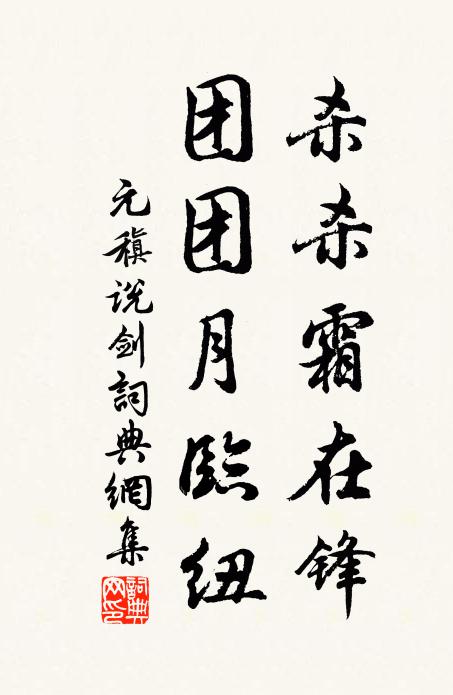 杀杀霜在锋
团团月临纽
元稹说剑詞典網集
詞典网印